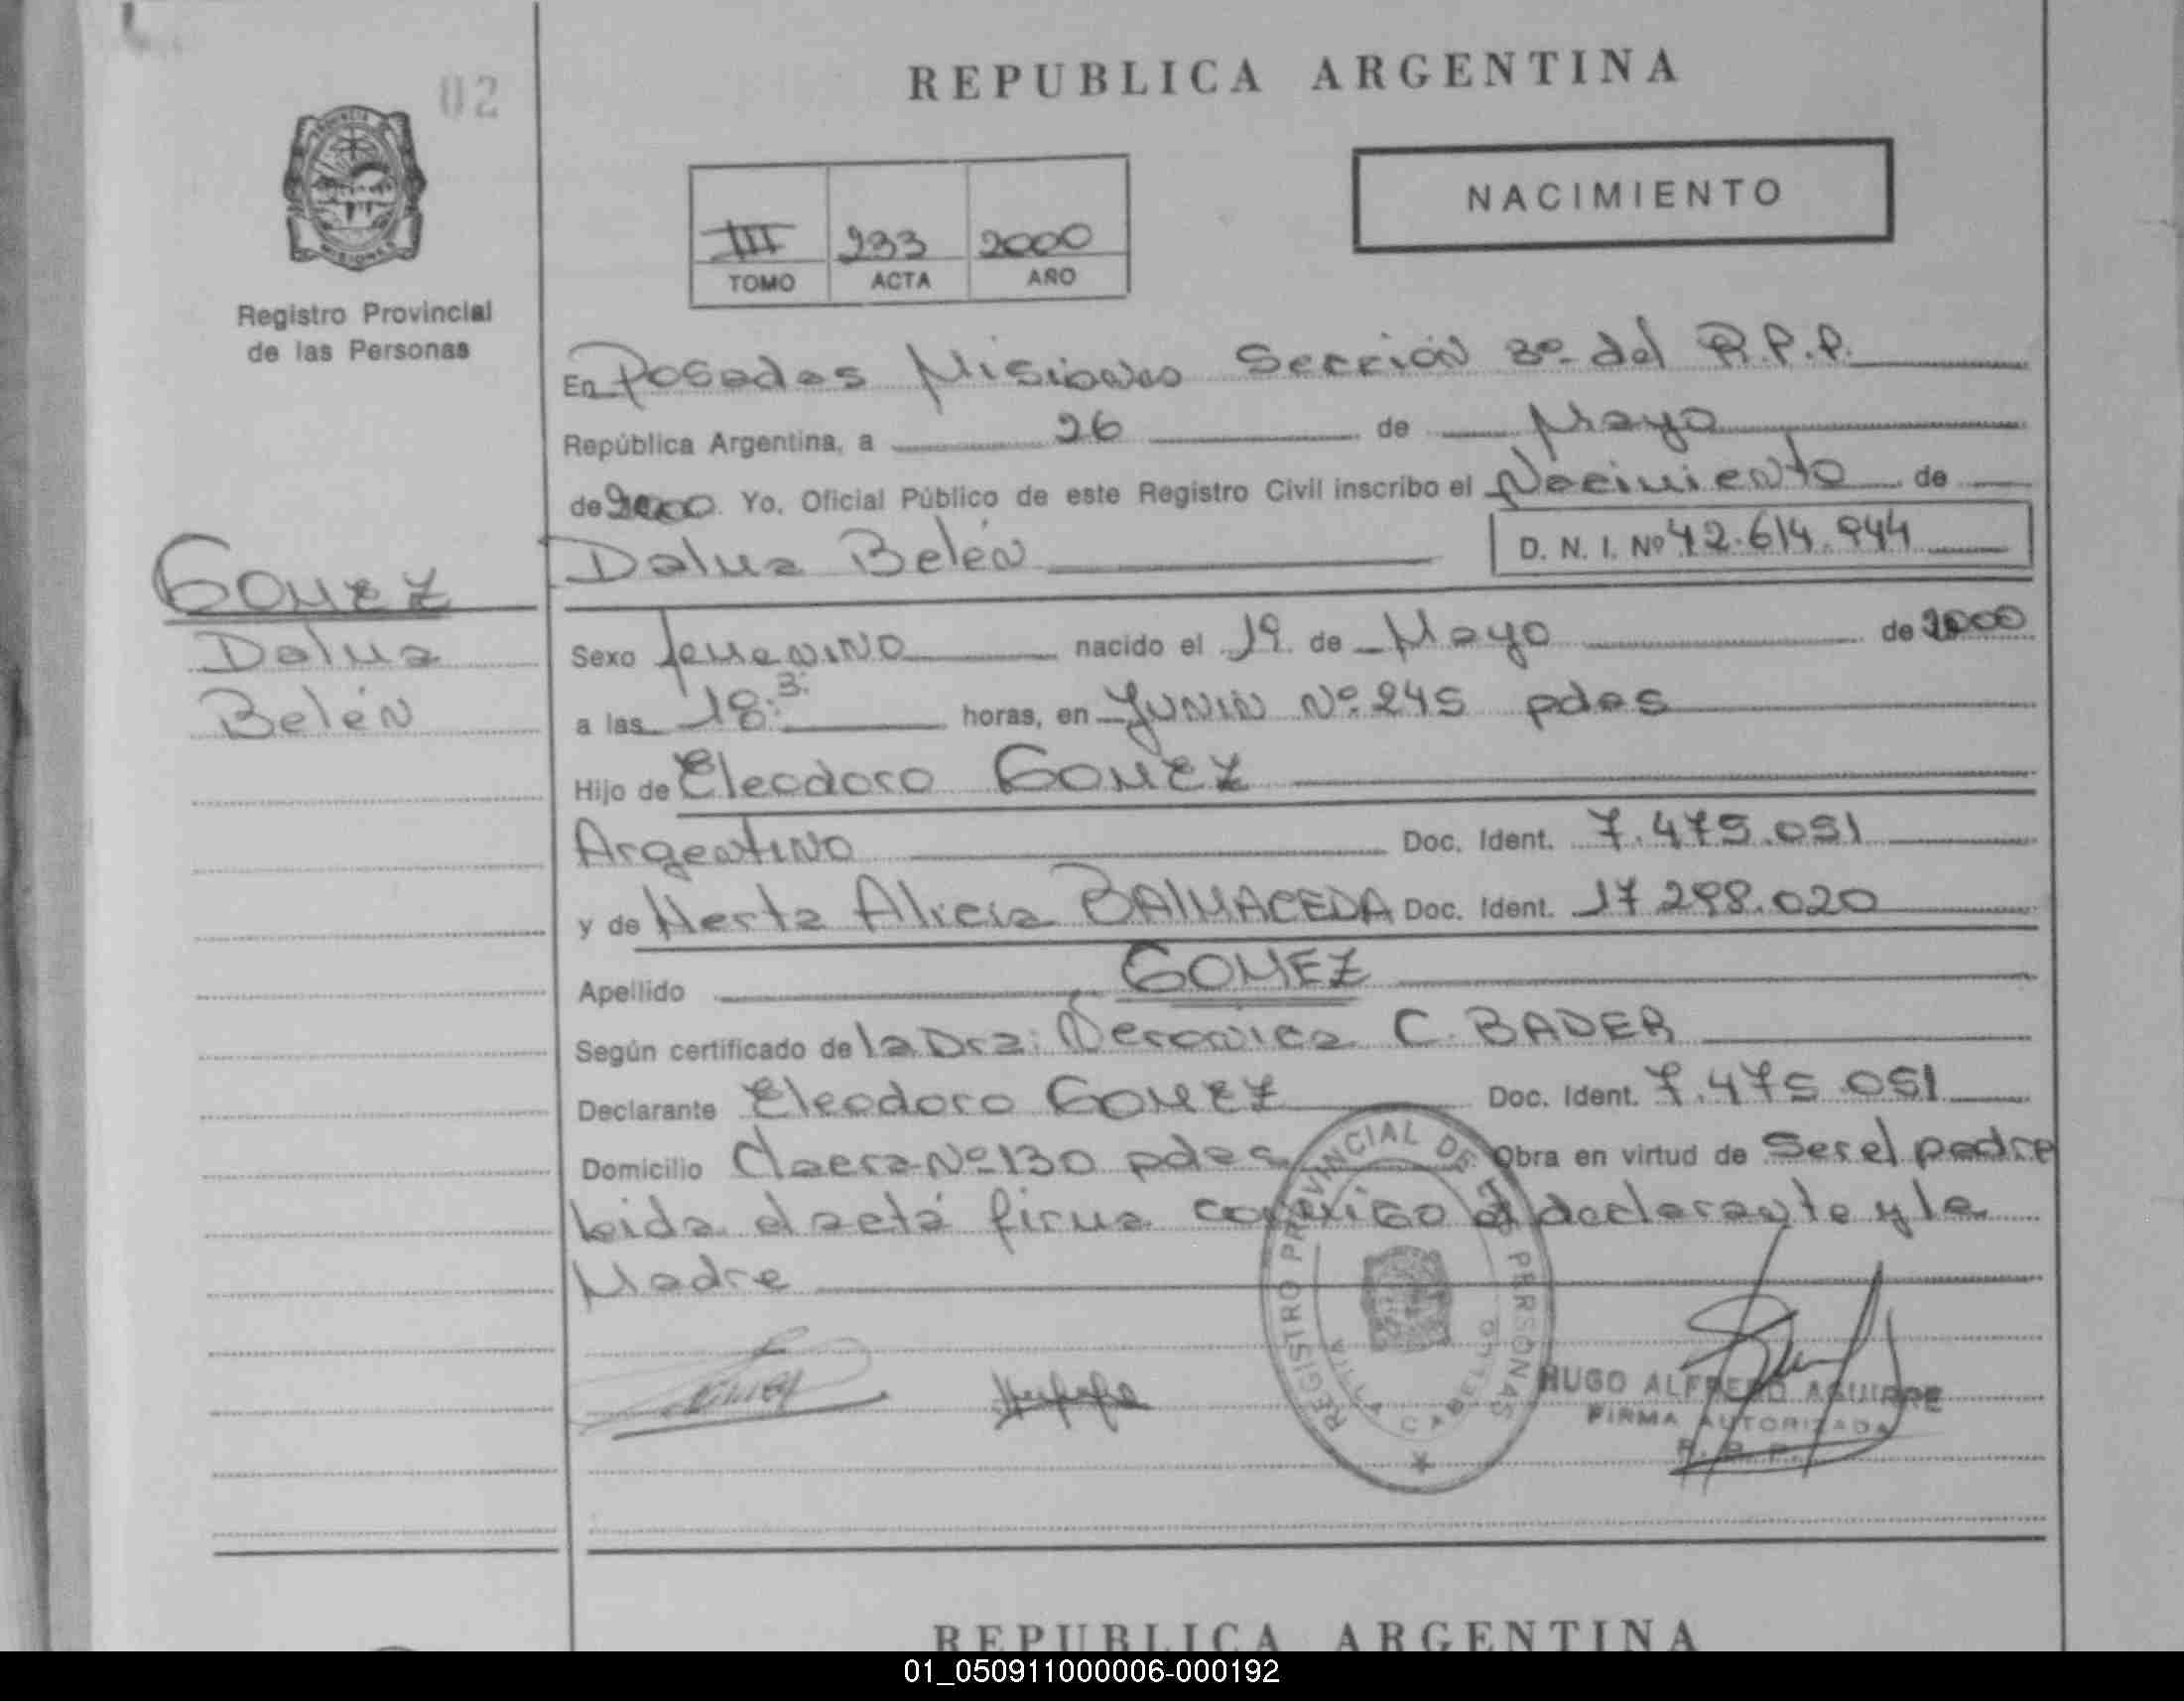 02
REPUBLICA ARGENTINA
NACIMIENTO
III 233 2000
TOMO ACTA AÑO
Registro Provincial
de las Personas
En Posadas Misiones Sección 3º del R.P.P.
República Argentina, a 26 de Mayo
de 2000. Yo, Oficial Público de este Registro Civil inscribo el Nacimiento de
Dalma Belén D. N. I. Nº 42.614.944
GOMEZ
Dalma
Belén
Sexo femenino nacido el 19 de Mayo de 2000
a las 18:3 horas, en Junin Nº 245 pdas
Hijo de Eleodoro GOMEZ
Argentino Doc. Ident. 7.475.051
y de Herta Alicia BALMACEDA Doc. Ident. 17.298.020
Apellido GOMEZ
Según certificado de la Dra: Veronica C. BADER
Declarante Eleodoro GOMEZ Doc. Ident. 7.475.051
Domicilio Nº 130 pdas Obra en virtud de Ser el padre
Leida el acta firma conmigo el declarante y la
Madre
REGISTRO PROVINCIAL DE LAS PERSONAS
VILLA CABELLO
HUGO ALFREDO AGUIRRE
FIRMA AUTORIZADA
R. P. P.
REPUBLICA ARGENTINA
01_050911000006-000192